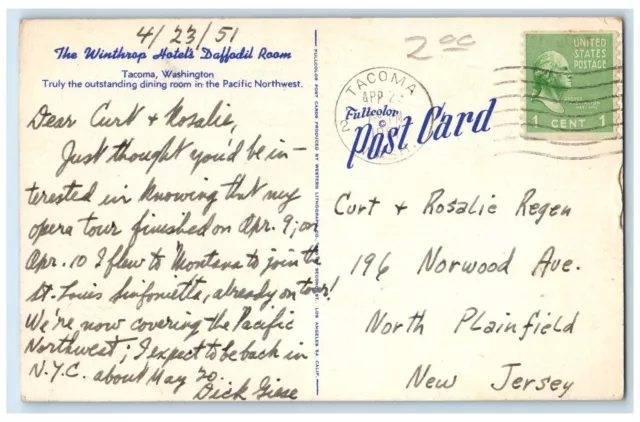 4/23/51
The Winthrop Hotel's Daffodil Room
Tacoma, Washington
Truly the outstanding dining room in the Pacific Northwest.
Dear Curt + Rosalie,
Just thought you'd be in-
terested in knowing that my
opera tour finished on Apr. 9; on
Apr. 10 I flew to Montana to join the
St. Louis Sinfonietta, already on tour!
We're now covering the Pacific
Northwest; I expect to be back in
N.Y.C. about May 20.
Dick Giese
2 oc
TACOMA
APR 23
2
WASH.
UNITED
STATES
POSTAGE
1 CENT 1
Fullcolor
Post Card
Curt + Rosalie Regen
196 Norwood Ave.
North Plainfield
New Jersey